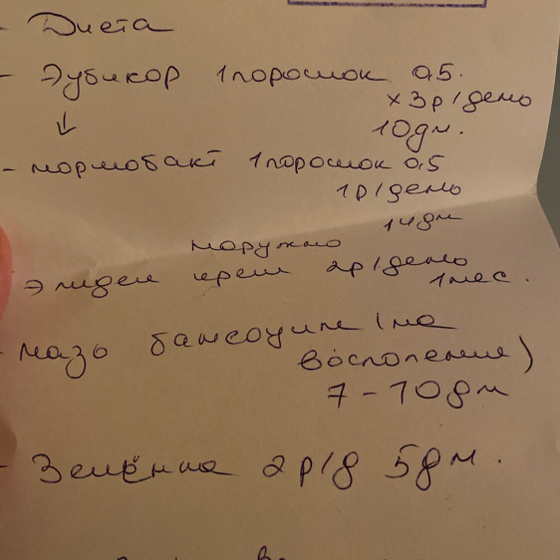 - Диета
- Эубикор 1 порошок 0.5.
x 3р/день
10 дн.
↓
- нормобакт 1 порошок 0.5
1р/день
14 дн
наружно
Элидел крем 2р/день
1 мес.
- мазь банеоцин (на
воспаления)
7-10 дн
- Зелёнка 2р/д 5дн.